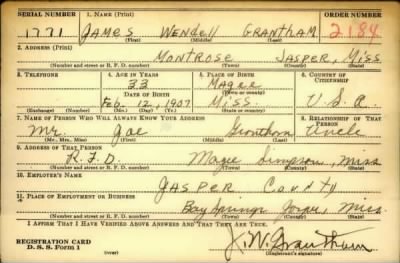 SERIAL NUMBER 1. NAME (Print) ORDER NUMBER
1771 JAMES WENDELL GRANTHAM 2184
2. ADDRESS (Print)
MONTROSE JASPER, MISS
(Number and street or R. F. D. number) (Town) (County) (State)
3. TELEPHONE 4. AGE IN YEARS 5. PLACE OF BIRTH 6. COUNTRY OF CITIZENSHIP
33 Magee
DATE OF BIRTH (Town or county)
Feb. 12, 1907 Miss. U.S.A.
(Exchange) (Number) (Mo.) (Day) (Yr.) (State or country)
7. NAME OF PERSON WHO WILL ALWAYS KNOW YOUR ADDRESS 8. RELATIONSHIP OF THAT PERSON
Mr. Joe Grantham Uncle
(Mr., Mrs., Miss) (First) (Middle) (Last)
9. ADDRESS OF THAT PERSON
R.F.D. Magee Simpson, Miss
(Number and street or R. F. D. number) (Town) (County) (State)
10. EMPLOYER'S NAME
JASPER County
11. PLACE OF EMPLOYMENT OR BUSINESS
Bay Springs Jasper, Miss.
(Number and street or R. F. D. number) (Town) (County) (State)
I AFFIRM THAT I HAVE VERIFIED ABOVE ANSWERS AND THAT THEY ARE TRUE.
REGISTRATION CARD
D. S. S. Form 1 J.W. Grantham
(Registrant's signature)